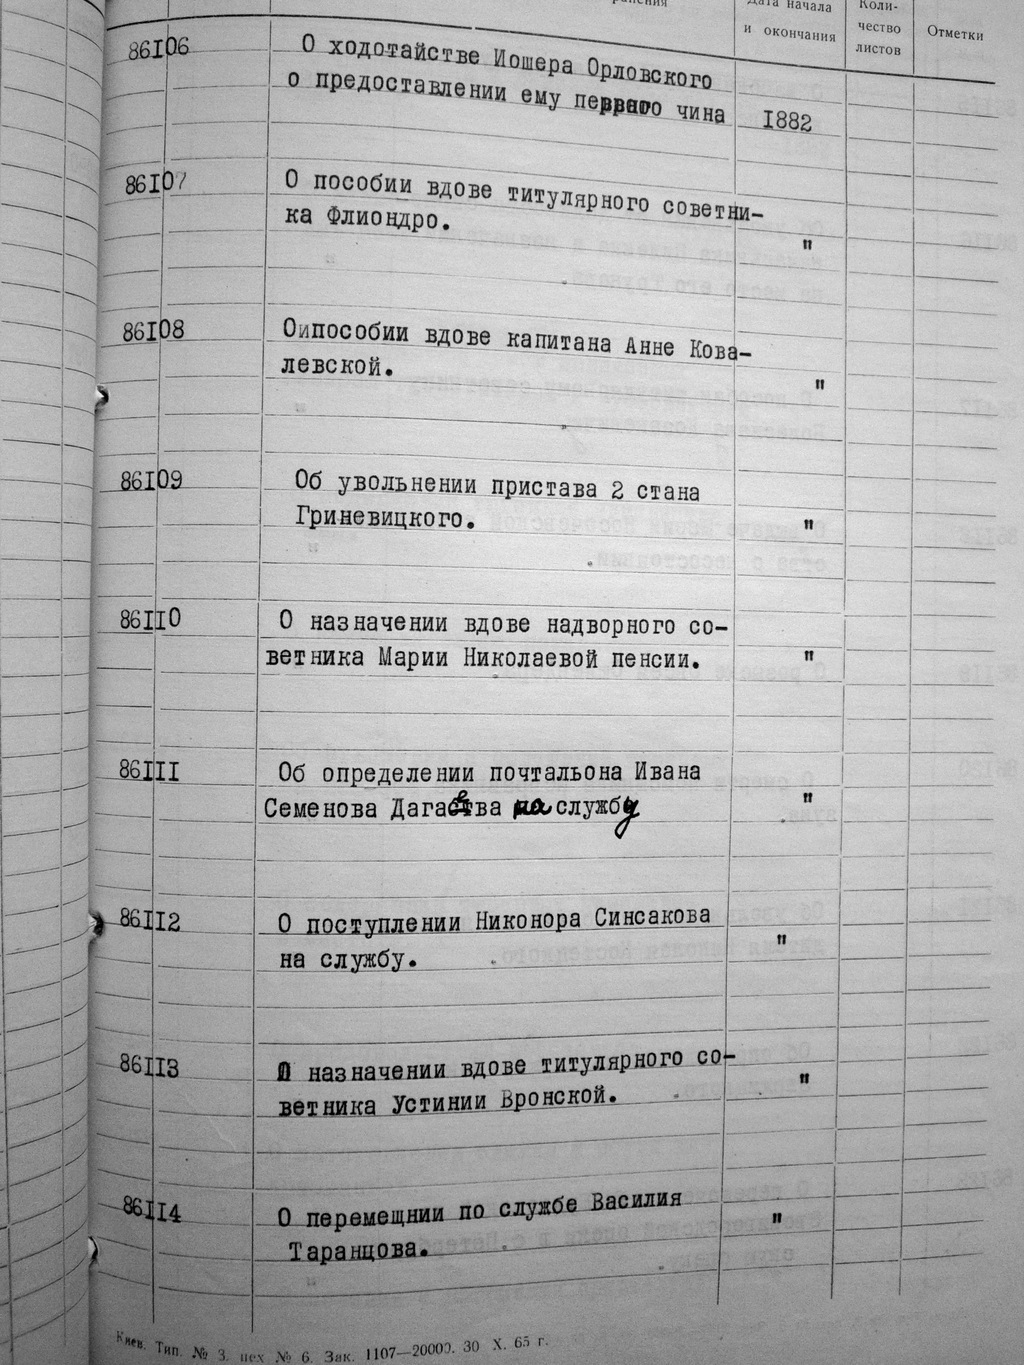 Дата начала
и окончания
Коли-
чество
листов
Отметки
86I06
О ходотайстве Иошера Орловского
о предоставлении ему первого чина
I882
86I07
О пособии вдове титулярного советни-
ка Флиондро.
"
86I08
Оипособии вдове капитана Анне Кова-
левской.
"
86I09
Об увольнении пристава 2 стана
Гриневицкого.
"
86II0
О назначении вдове надворного со-
ветника Марии Николаевой пенсии.
"
86III
Об определении почтальона Ивана
Семенова на службу
"
86II2
О поступлении Никонора Синсакова
на службу.
"
86II3
О назначении вдове титулярного со-
ветника Устинии Вронской.
"
86II4
О перемещнии по службе Василия
Таранцова.
"
Киев. Тип. № 3. цех № 6. Зак. 1107—20000. 30 X. 65 г.